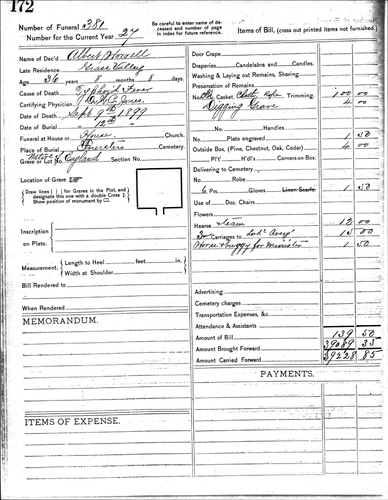 172
Number of Funeral 381
Number for the Current Year 27
Be careful to enter name of deceased and number of page in index for future reference.
Items of Bill, (cross out printed items not furnished.)
Name of Dec'd Albert Howell
Late Residence Grass Valley
Age 36 years 8 months 8 days.
Cause of Death Typhoid Fever
Certifying Physician Jones.
Date of Death Sept 9th 1899
Date of Burial " 12th "
Funeral at House or House Church.
Place of Burial Cemetery.
Grave or Lot No. Native of England Section No.
Location of Grave
Draw lines for Graves in the Plot, and designate this one with a double Cross
Show position of monument by □.
Inscription on Plate.
Measurement, Length to Heel feet in.
Width at Shoulder
Bill Rendered
When Rendered
MEMORANDUM.
ITEMS OF EXPENSE.
Door Crape
Draperies Candelabra and Candles.
Washing & Laying out Remains, Shaving
Preservation of Remains
No. Casket, Cloth Trimming. 100 00
Digging Grave 4 00
No. Handles
Plate engraved 1 50
Outside Box (Pine, Chestnut, Oak, Cedar) 4 00
PlY. H'dl's Corners on Box.
Delivering to Cemetery
No. Robe
6 Prs. Gloves Linen Scarfs 1 50
Use of Doc. Chairs
Flowers
Hearse & team 12 00
3 Carriages to 15 00
Horse & buggy for Minister 1 50
Advertising
Cemetery charges
Transportation Expenses, &c.
Attendance & Assistants
Amount of Bill 139 50
Amount Brought Forward 39089 35
Amount Carried Forward 39228 85
PAYMENTS.